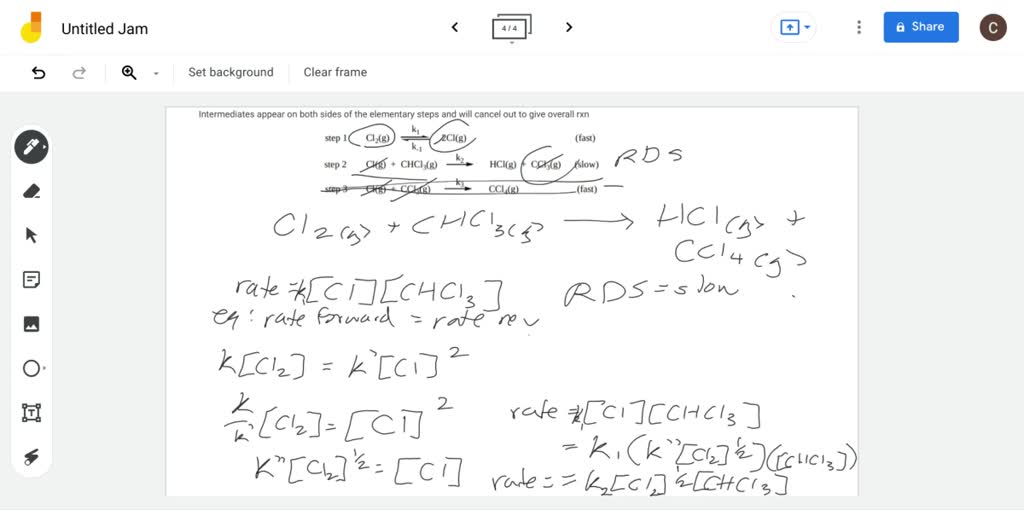 Untitled Jam
4 / 4
Share
C
Set background
Clear frame
Intermediates appear on both sides of the elementary steps and will cancel out to give overall rxn
step 1 Cl₂(g) k₁ ⇌ k₋₁ 2Cl(g) (fast)
step 2 Cl(g) + CHCl₃(g) k₂ → HCl(g) + CCl₃(g) (slow) RDS
step 3 Cl(g) + CCl₃(g) k₃ → CCl₄(g) (fast)
Cl₂(g) + CHCl₃(g) → HCl(g) +
CCl₄(g)
rate = k[Cl][CHCl₃] RDS = slow
eq: rate forward = rate rev
k[Cl₂] = k'[Cl]²
k/k' [Cl₂] = [Cl]²
k"[Cl₂]^½ = [Cl]
rate = k₁[Cl][CHCl₃]
= k₁(k"[Cl₂]^½)([CHCl₃])
rate = = k₂[Cl₂]^½[CHCl₃]